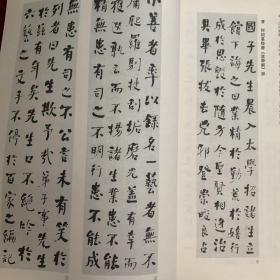 國子先生晨入太學招諸生立
館下誨之曰業精於勤荒於嬉行
成於思毀於隨方今聖賢相逢治
具畢張拔去兇邪登崇畯良占
小善者率以錄名一藝者無不
庸爬羅剔抉刮垢磨光蓋有幸而
選孰云多而不揚諸生業患不能
患有司之不明行患不能成
患有司之不公言未有笑於
列者曰先生欺予哉弟子事先生
於茲有年矣先生口不絕吟於
六藝之文手不停於百家之編記